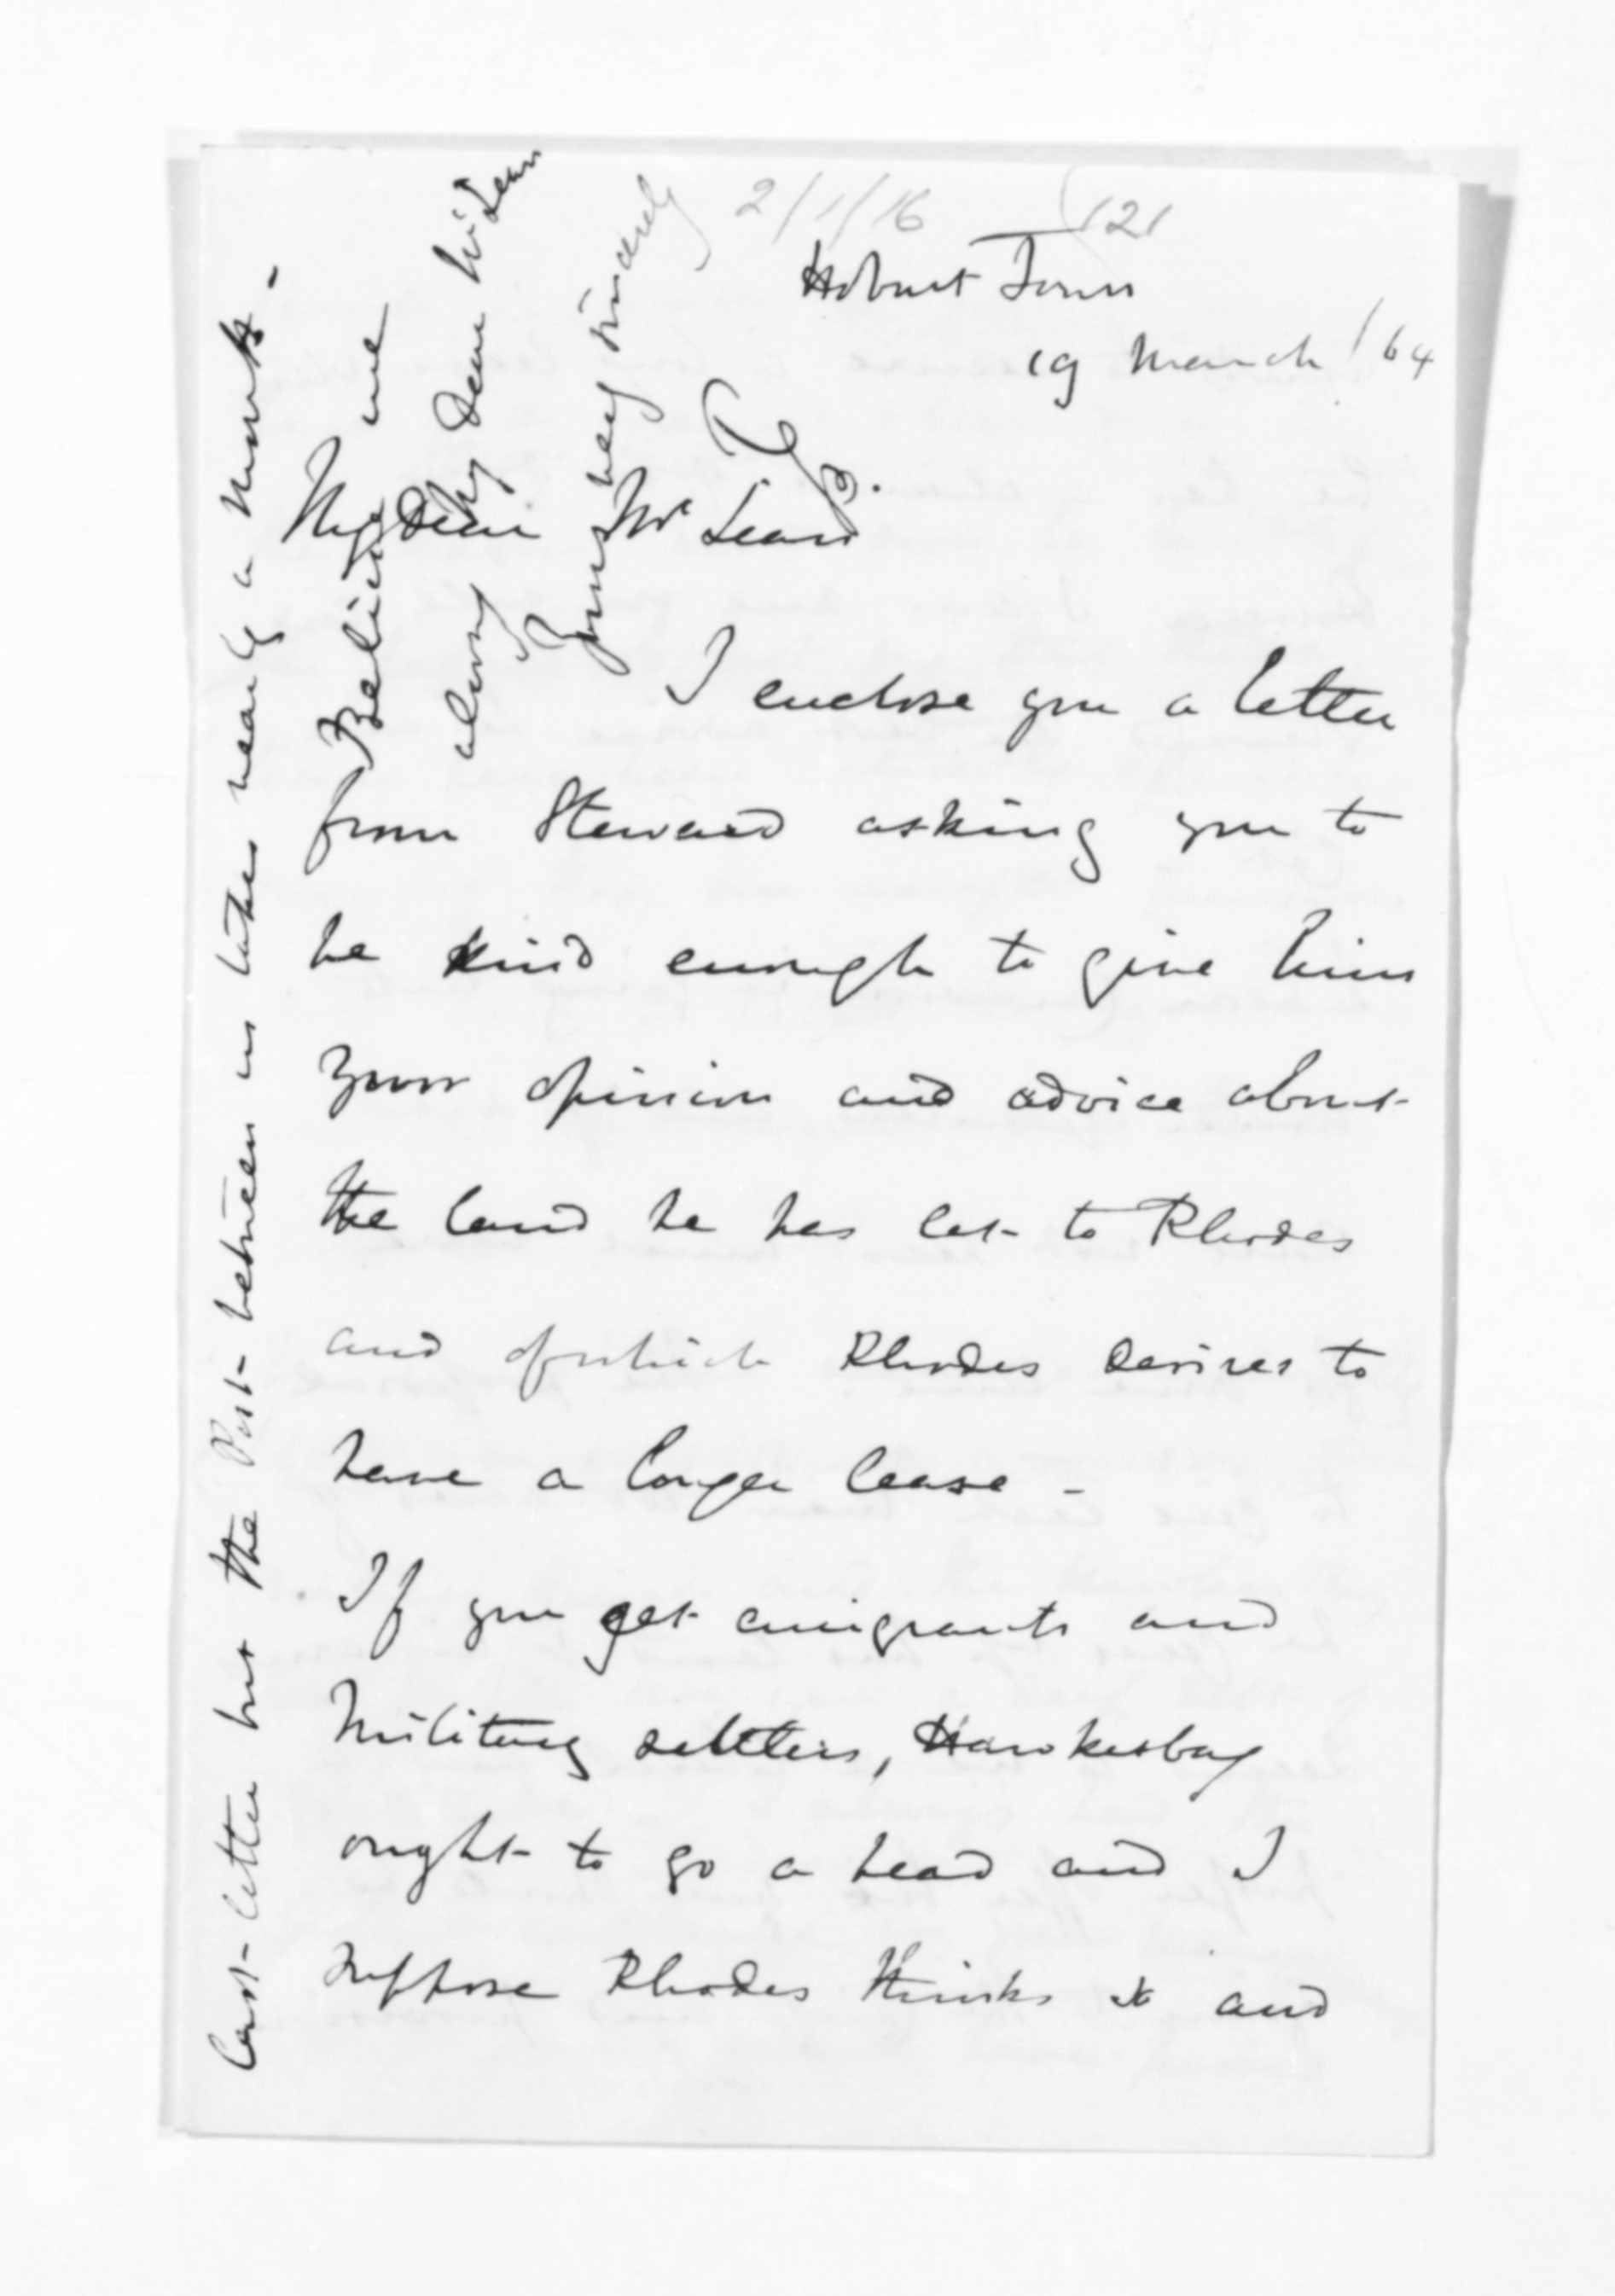 2/1/16 (121
Hobart Town
19 March / 64
My Dear McLean
I enclose you a letter
from Steward asking you to
be kind enough to give him
your opinion and advice about
the land he has let to Rhodes
and of which Rhodes desires to
have a longer lease -
If you get emigrants and
Military settlers, Hawkesbay
ought to go a head and I
suppose Rhodes thinks so and
last letter but the Post between us takes nearly a month -
Believe me
my Dear McLean
always
Yours very sincerely